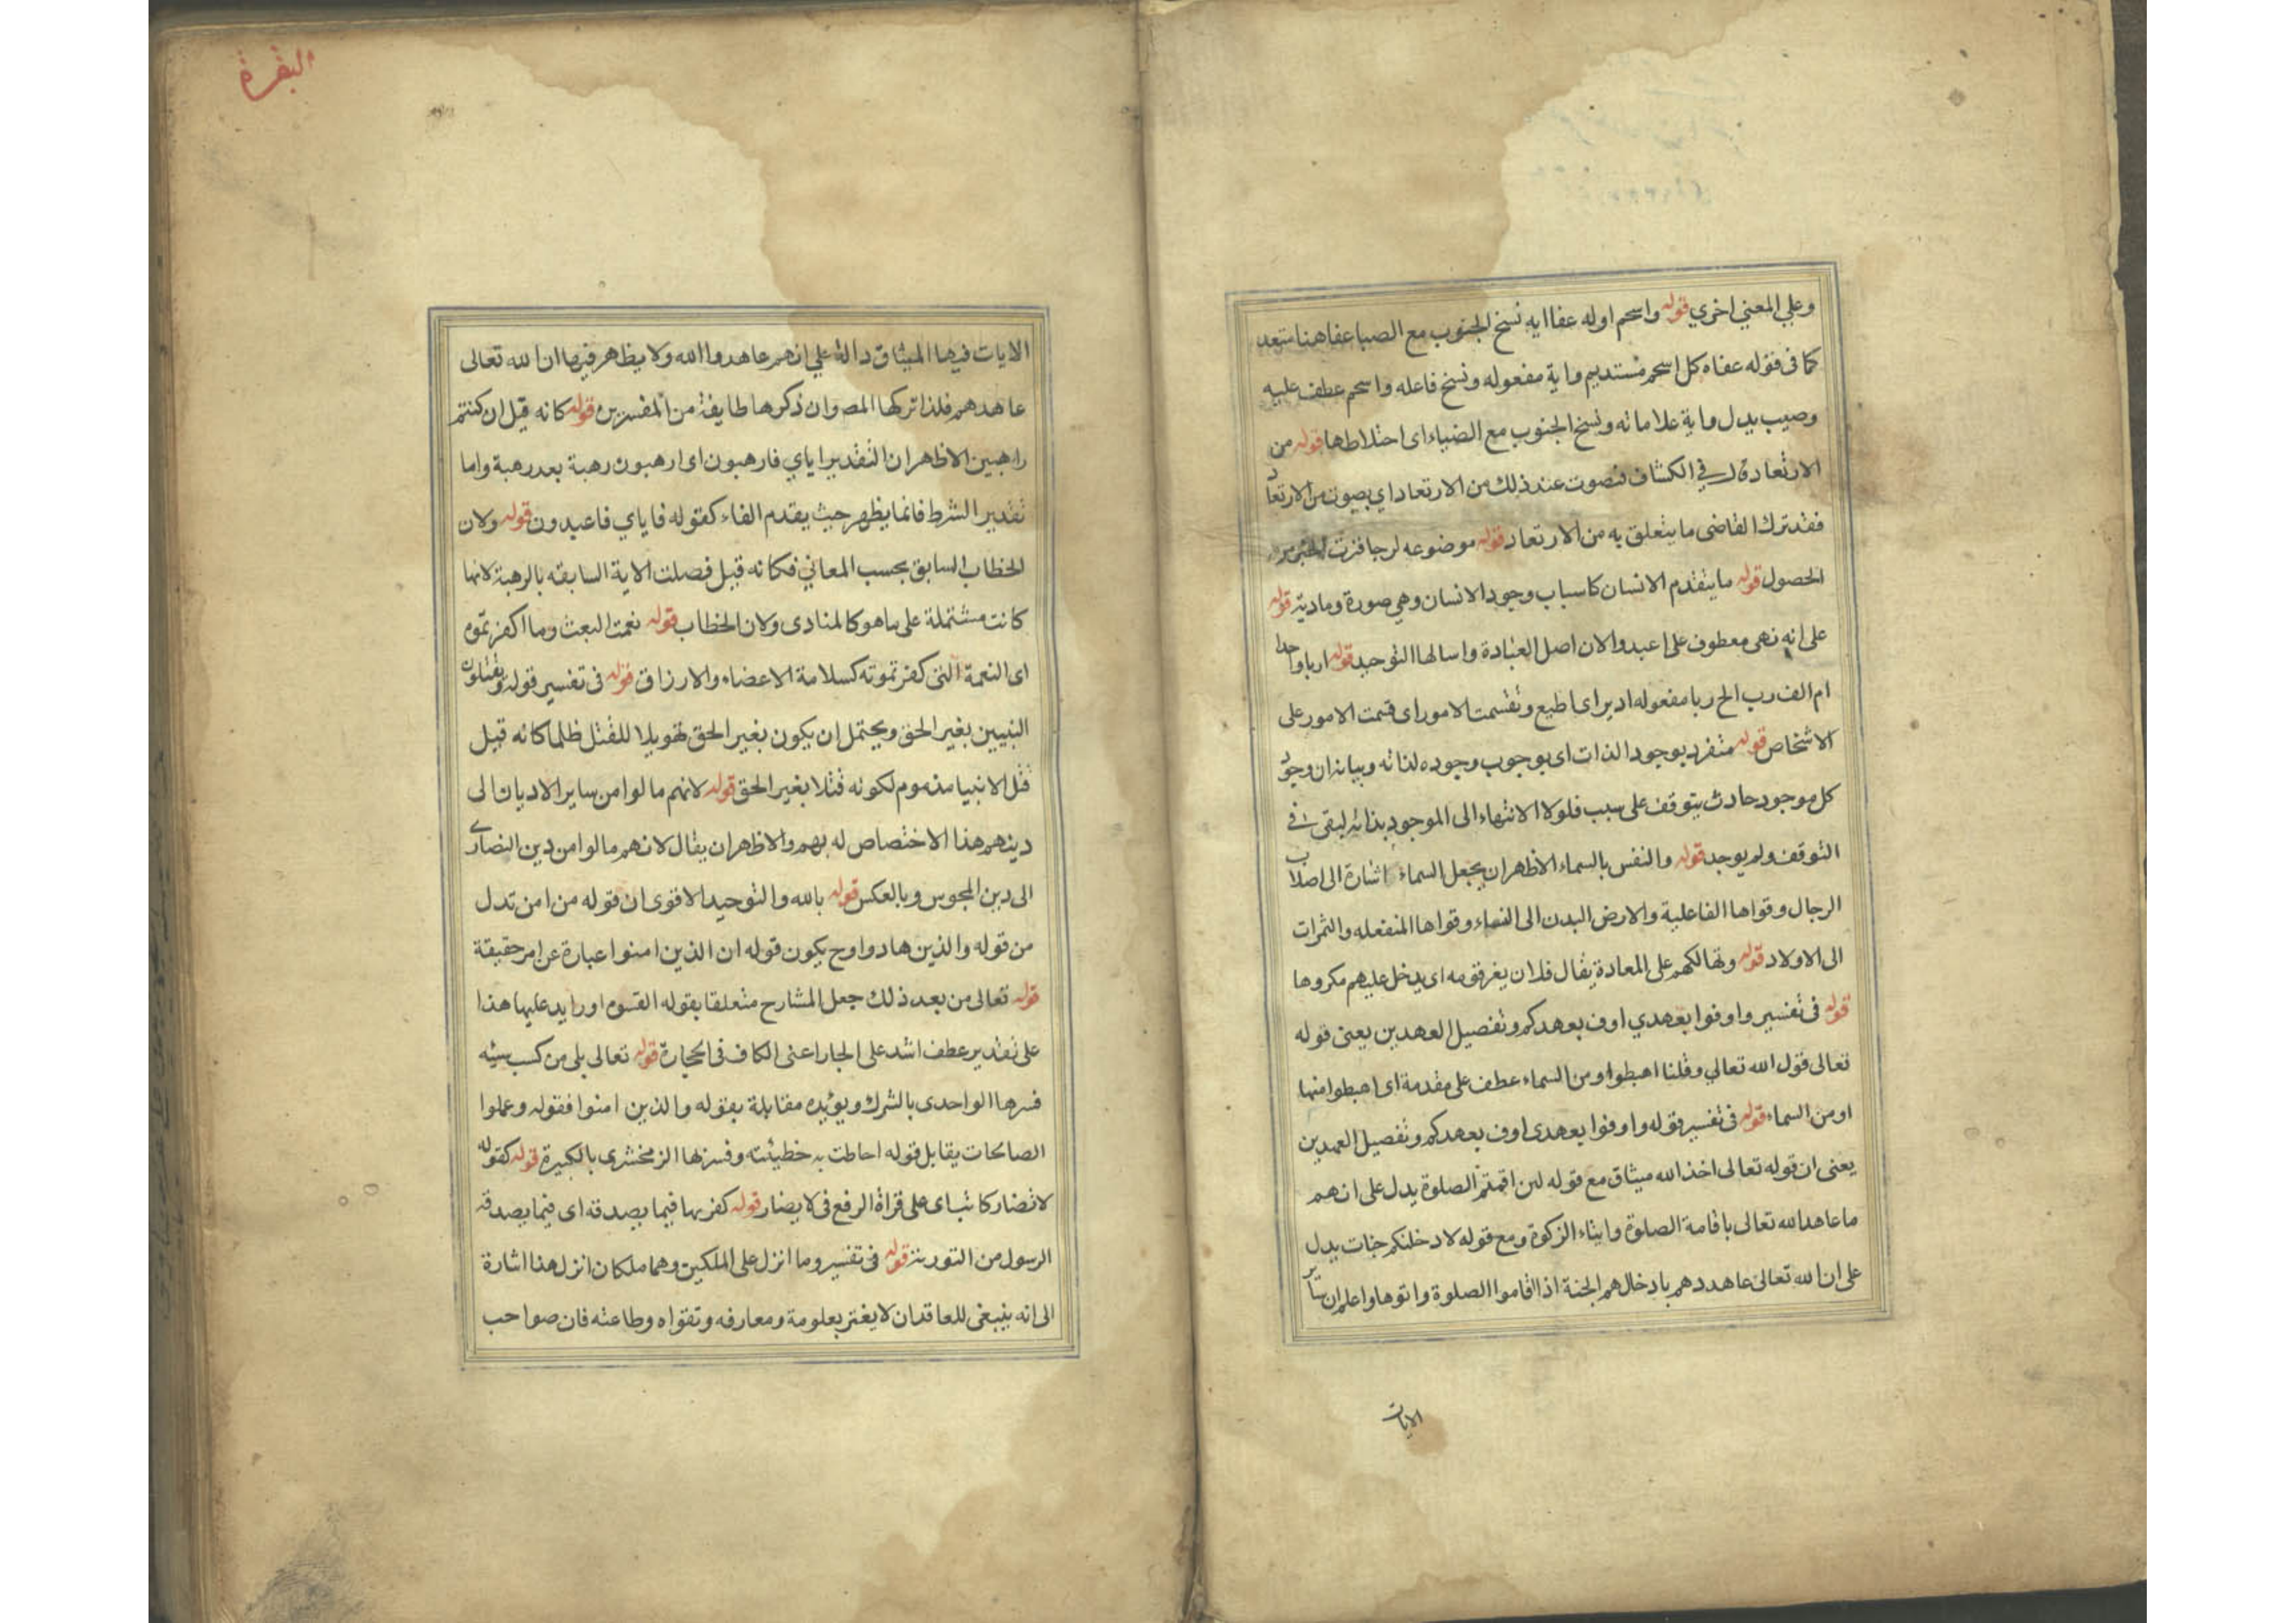 وعلي المعني اخري قوله واسحم اوله عفا ايه نسخ الجنوب مع الصبا عفا هنا متعد
كما فى قوله عفاه كل اسحم مستديم واية مفعوله ونسخ فاعله واسحم عطف عليه
وصيب يدل واية علاماته ونسخ الجنوب مع الضياء اى اختلاطها قوله من
الارتعاد فى الكشاف فتصوت عند ذلك من الارتعاد اي يصوت من الارتعاد
فقد ترك القاضى ما يتعلق به من الارتعاد قوله موضوعه لرجا
الحصول قوله ما يتقدم الانسان كاسباب وجود الانسان وهي صورة ومادية قوله
على انه نهى معطوف على اعبدوا لان اصل العبادة واسالها التوحيد قوله اربا واحدا
ام الف رب الخ ربا مفعوله ادير اى اطيع وتقسمت الامور اى قسمت الامور على
الاشخاص قوله متفرد بوجود الذات اى بوجوب وجوده لذاته وبيانه ان وجود
كل موجود حادث يتوقف على سبب فلولا الانتهاء الى الموجود بذاته لبقى فى
التوقف ولم يوجد قوله والنفس بالسماء الاظهر ان يجعل السماء اشارة الى اصلاب
الرجال وقواها الفاعلية والارض البدن الى النساء وقواها المنفعله والثمرات
الى الاولاد قوله وتهالكهم على المعادة يقال فلان يغر قومه اى يدخل عليهم مكروها
قوله فى تفسير واوفوا بعهدي اوف بعهدكم وتفصيل العهدين يعنى قوله
تعالى قول الله تعالي وقلنا اهبطوا ومن السماء عطف على مقدمة اى اهبطوا منها
او من السماء قوله فى تفسير قوله واوفوا بعهدى اوف بعهدكم وتفصيل العهدين
يعنى ان قوله تعالى اخذ الله ميثاق مع قوله لئن اقمتم الصلوة يدل على انهم
ما عاهد الله تعالى باقامة الصلوة وايتاء الزكوة ومع قوله لادخلنكم جنات يدل
على ان الله تعالى عاهددهم بادخالهم الجنة اذا اقاموا الصلوة واتوها واعلم ان ساير
الايات
البقرة
الايات فيها الميثاق دالة علي انهم عاهدوا الله ولا يظهر فيها ان الله تعالى
عاهدهم فلذا تركها المص وان ذكرها طايفة من المفسرين قوله كانه قيل ان كنتم
راهبين الاظهر ان التقدير اياي فارهبون اى ارهبون رهبة بعد رهبة واما
تقدير الشرط فانما يظهر حيث يقدم الفاء كقوله فاياي فاعبدون قوله ولان
الخطاب السابق بحسب المعاني فكانه قيل فصلت الاية السابقه بالرهبة لانها
كانت مشتملة على ما هو كالمنادى ولان الخطاب قوله نعمت البعث وما اكفرتموه
اى النعمة التى كفرتموته كسلامة الاعضاء والارزاق قوله فى تفسير قوله ويقتلون
النبيين بغير الحق ويحتمل ان يكون بغير الحق تهويلا للقتل ظلما كانه قيل
قتل الانبيا مذموم لكونه قتلا بغير الحق قوله لانهم مالوا من ساير الاديان الى
دينهم هذا الاختصاص له بهم والاظهر ان يقال لانهم مالوا من دين النصارى
الى دين المجوس وبالعكس قوله بالله والتوحيد الاقوى ان قوله من امن تدل
من قوله والذين هادوا وح يكون قوله ان الذين امنوا عبارة عن امر حقيقة
قوله تعالى من بعد ذلك جعل المشارح متعلقا بقوله القسوه او را يد عليها هذا
على تقدير عطف اشد على الجار اعنى الكاف فى كالحجارة قوله تعالى بلى من كسب سيئه
فسرها الواحدى بالشرك ويؤيده مقابلة بقوله والذين امنوا فقوله وعملوا
الصالحات يقابل قوله احاطت به خطيئته وفسرتها الزمخشرى بالكبيرة قوله كقوله
لا تضار كاتب اى على قراة الرفع فى لا يضار قوله كفر بها فيما يصدقه اى فيما يصدقه
الرسول من التورية قوله فى تفسير وما انزل على الملكين وهما ملكان انزل هذا اشارة
الى انه ينبغى للعاقد ان لا يغتر بعلومة ومعارفه وتقواه وطاعته فان صواحب